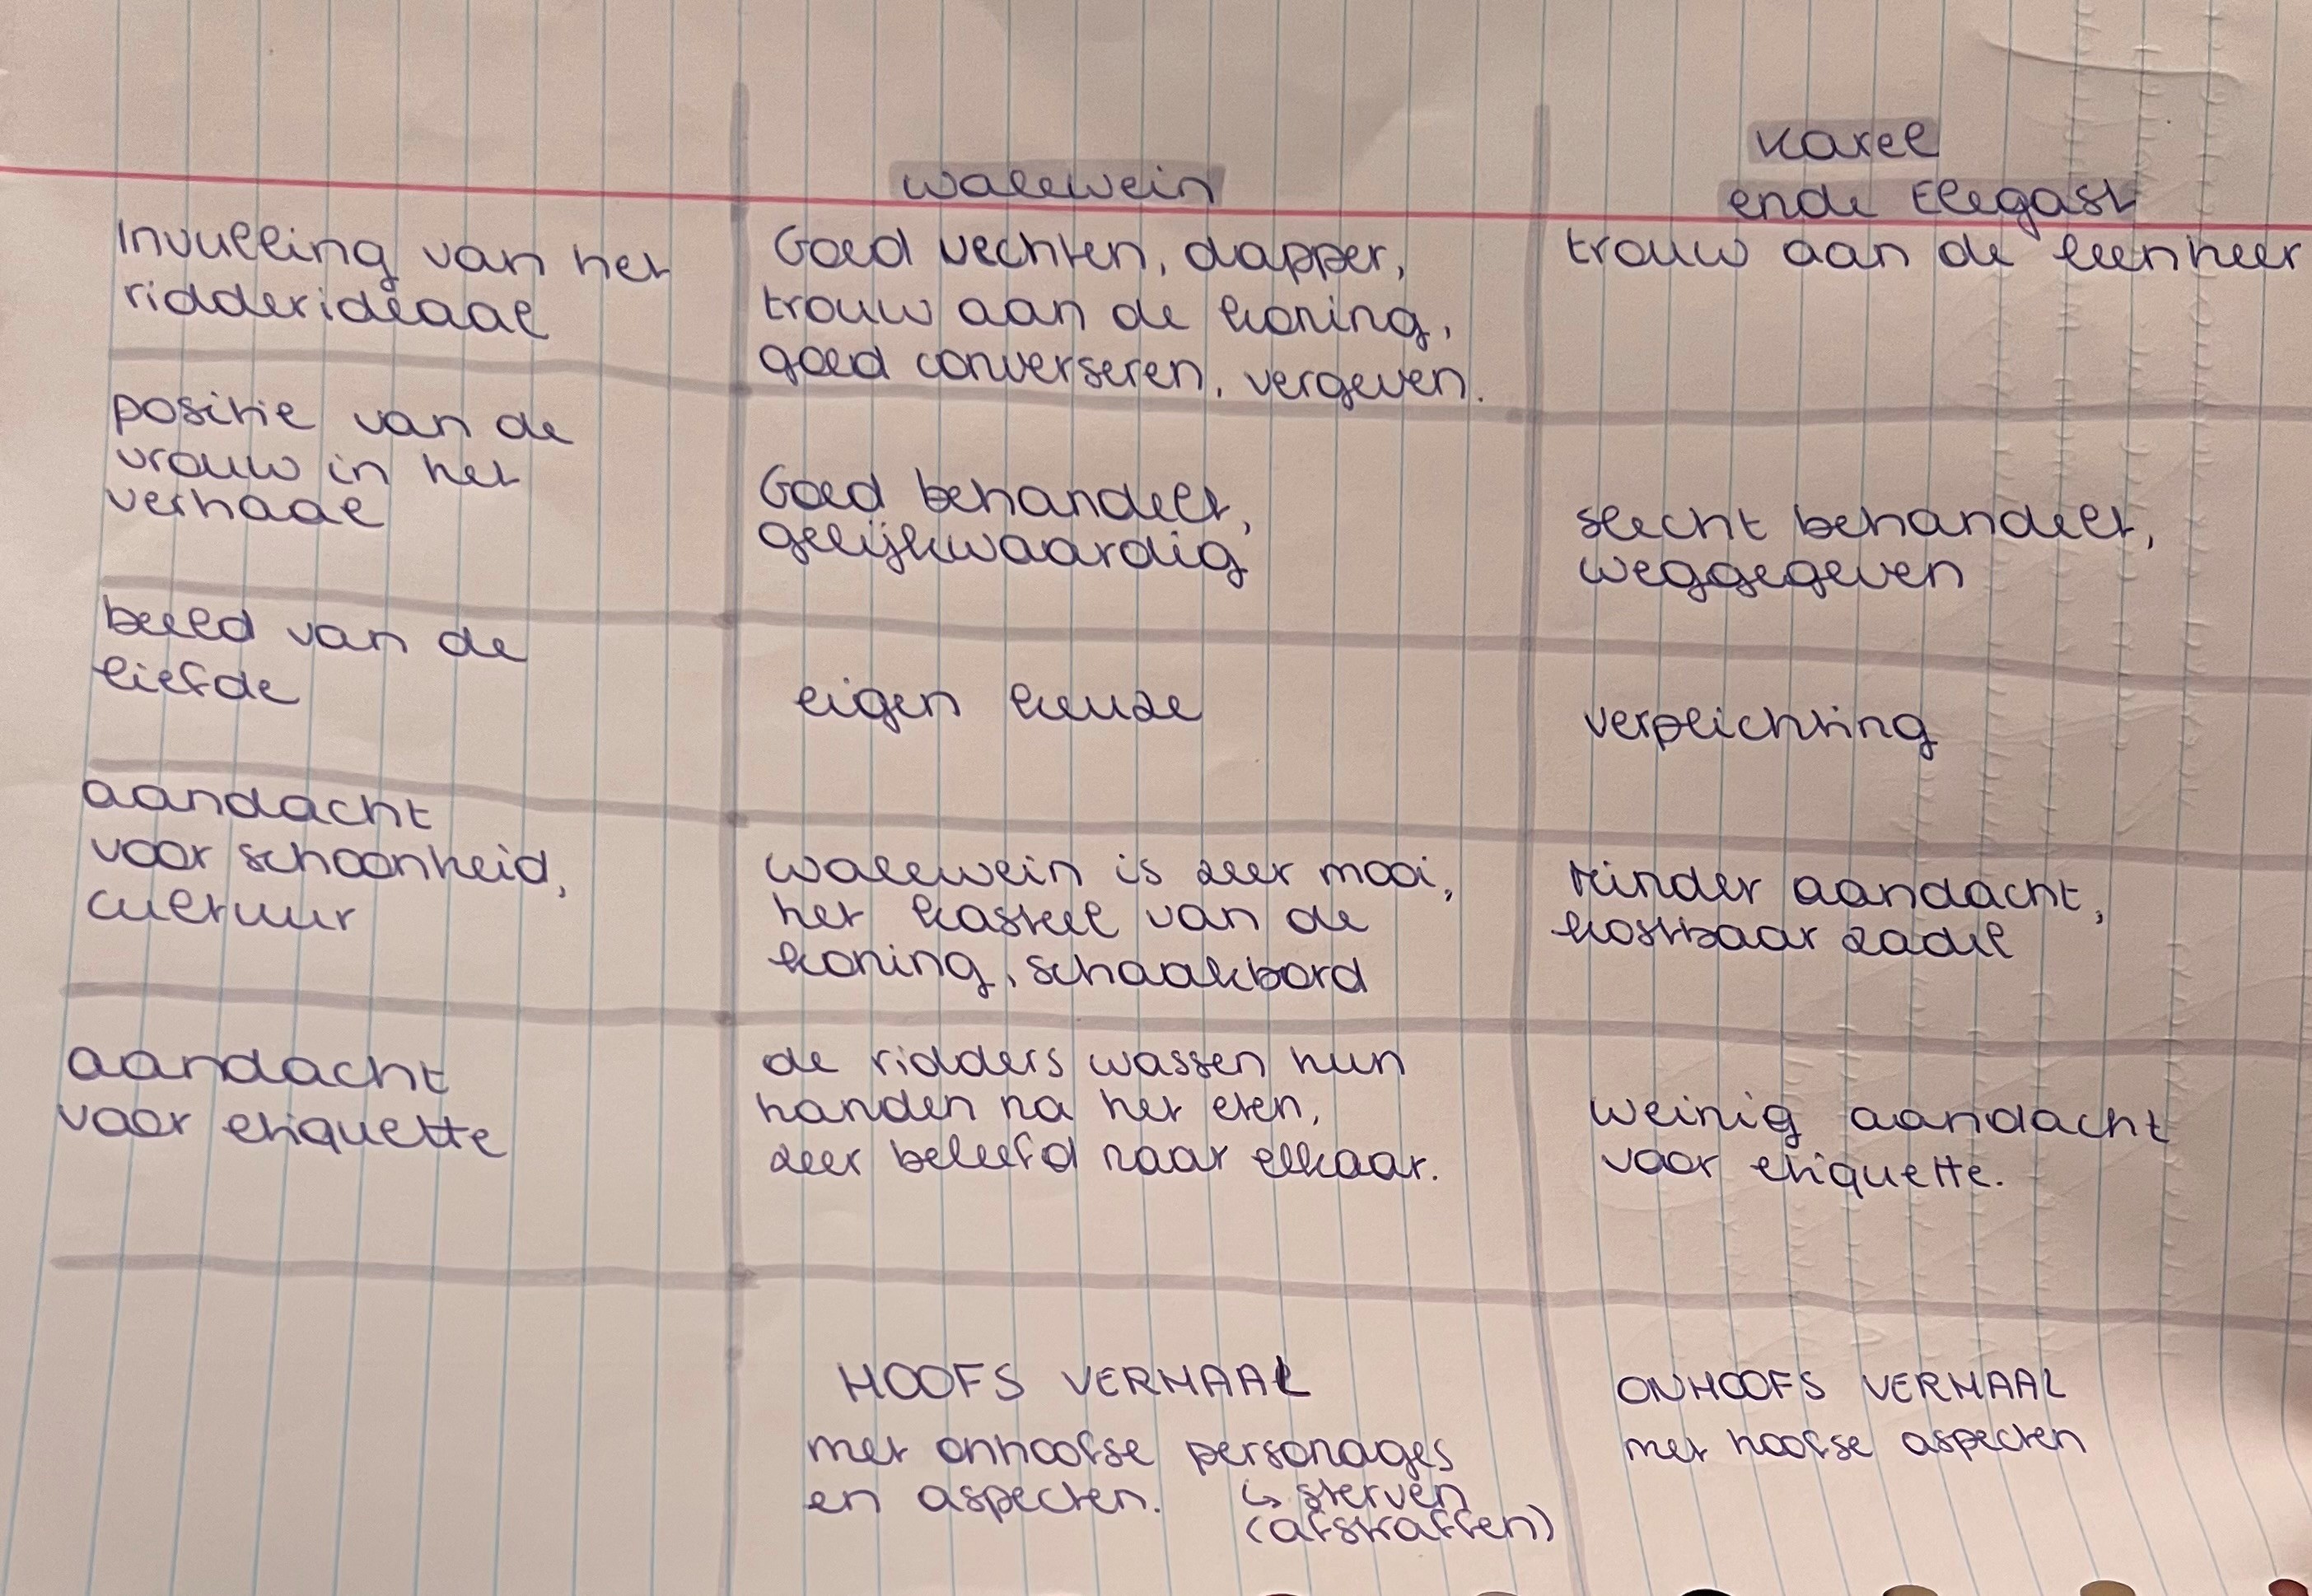 walewein
Karel
ende Elegast
Invulling van het
ridderideaal
Goed vechten, dapper,
trouw aan de koning,
goed converseren, vergeven.
trouw aan de leenheer
positie van de
vrouw in het
verhaal
Goed behandelt,
gelijkwaardig
slecht behandelt,
weggegeven
beeld van de
liefde
eigen keuze
verplichting
aandacht
voor schoonheid,
cultuur
walewein is zeer mooi,
het kasteel van de
koning, schaakbord
Minder aandacht,
kostbaar zadel
aandacht
voor etiquette
de ridders wassen hun
handen na het eten,
zeer beleefd naar elkaar.
weinig aandacht
voor etiquette.
HOOFS VERHAAL
met onhoofse personages
en aspecten. ↳ sterven
(afstraffen)
ONHOOFS VERHAAL
met hoofse aspecten